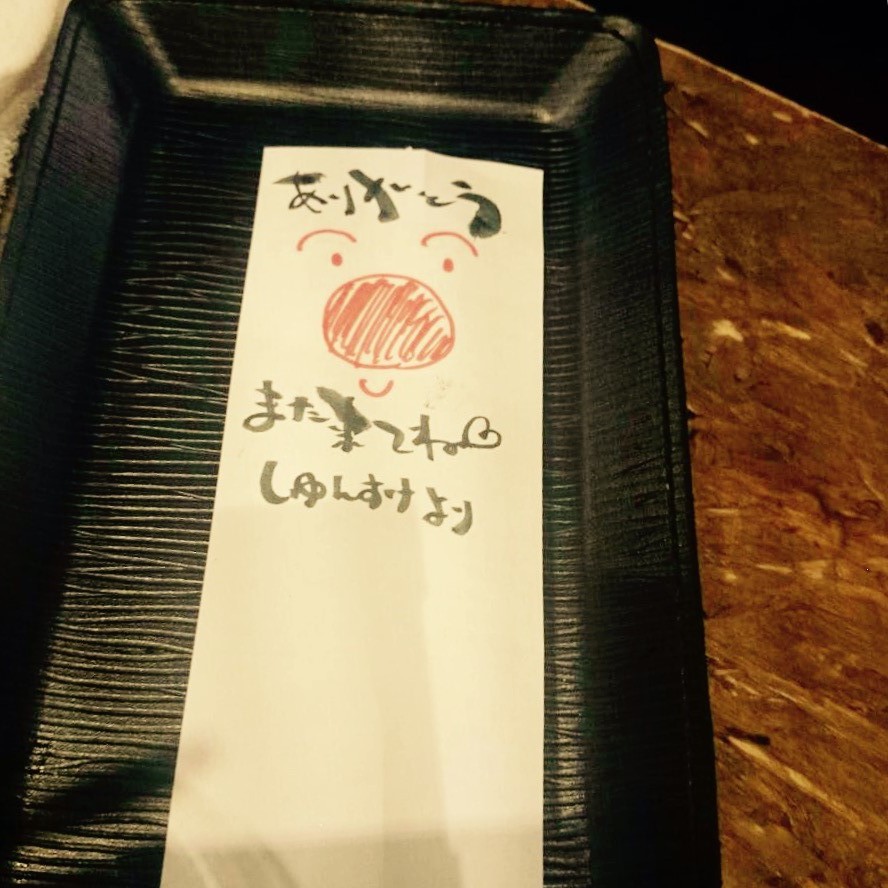 ありがとう
また来てね♡
しゅんすけより